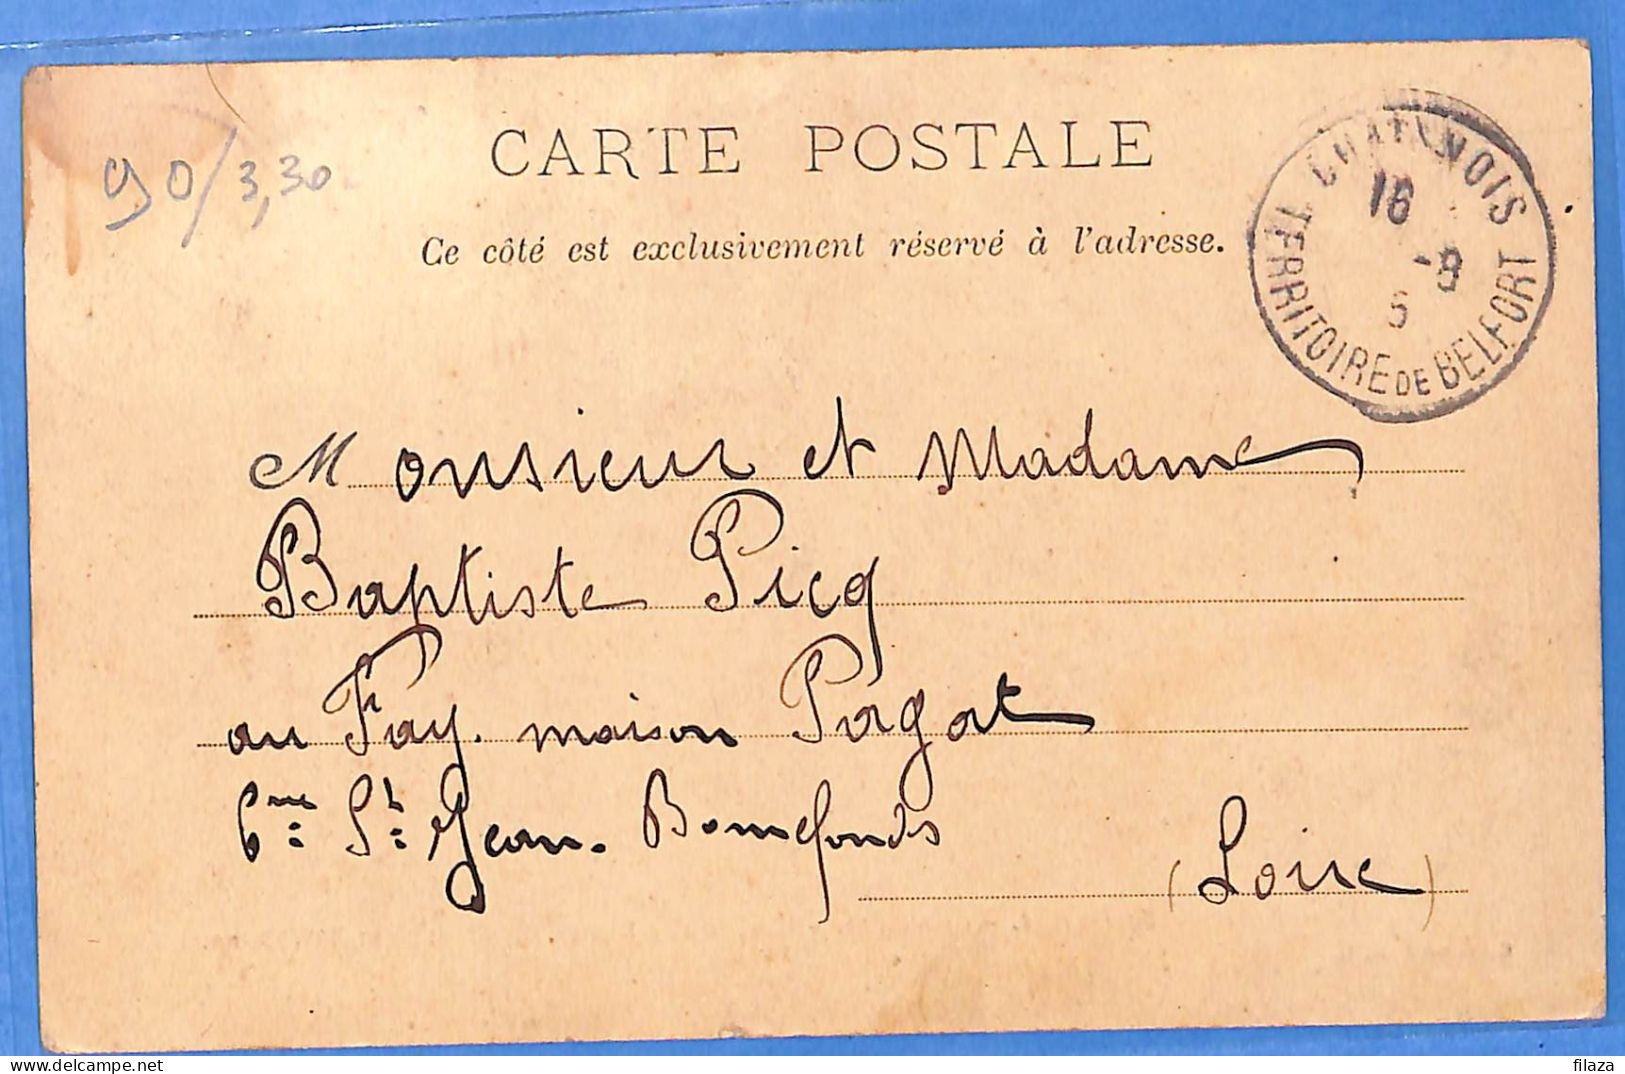 CARTE POSTALE
Ce côté est exclusivement réservé à l'adresse.
90/3,30
CHATENOIS
16 -9
5
TERRITOIRE DE BELFORT
Monsieur et Madame
Baptiste Picq
au Fay. maison Pagat
Cne St Jean. Bonnefonds
(Loire)
filaza